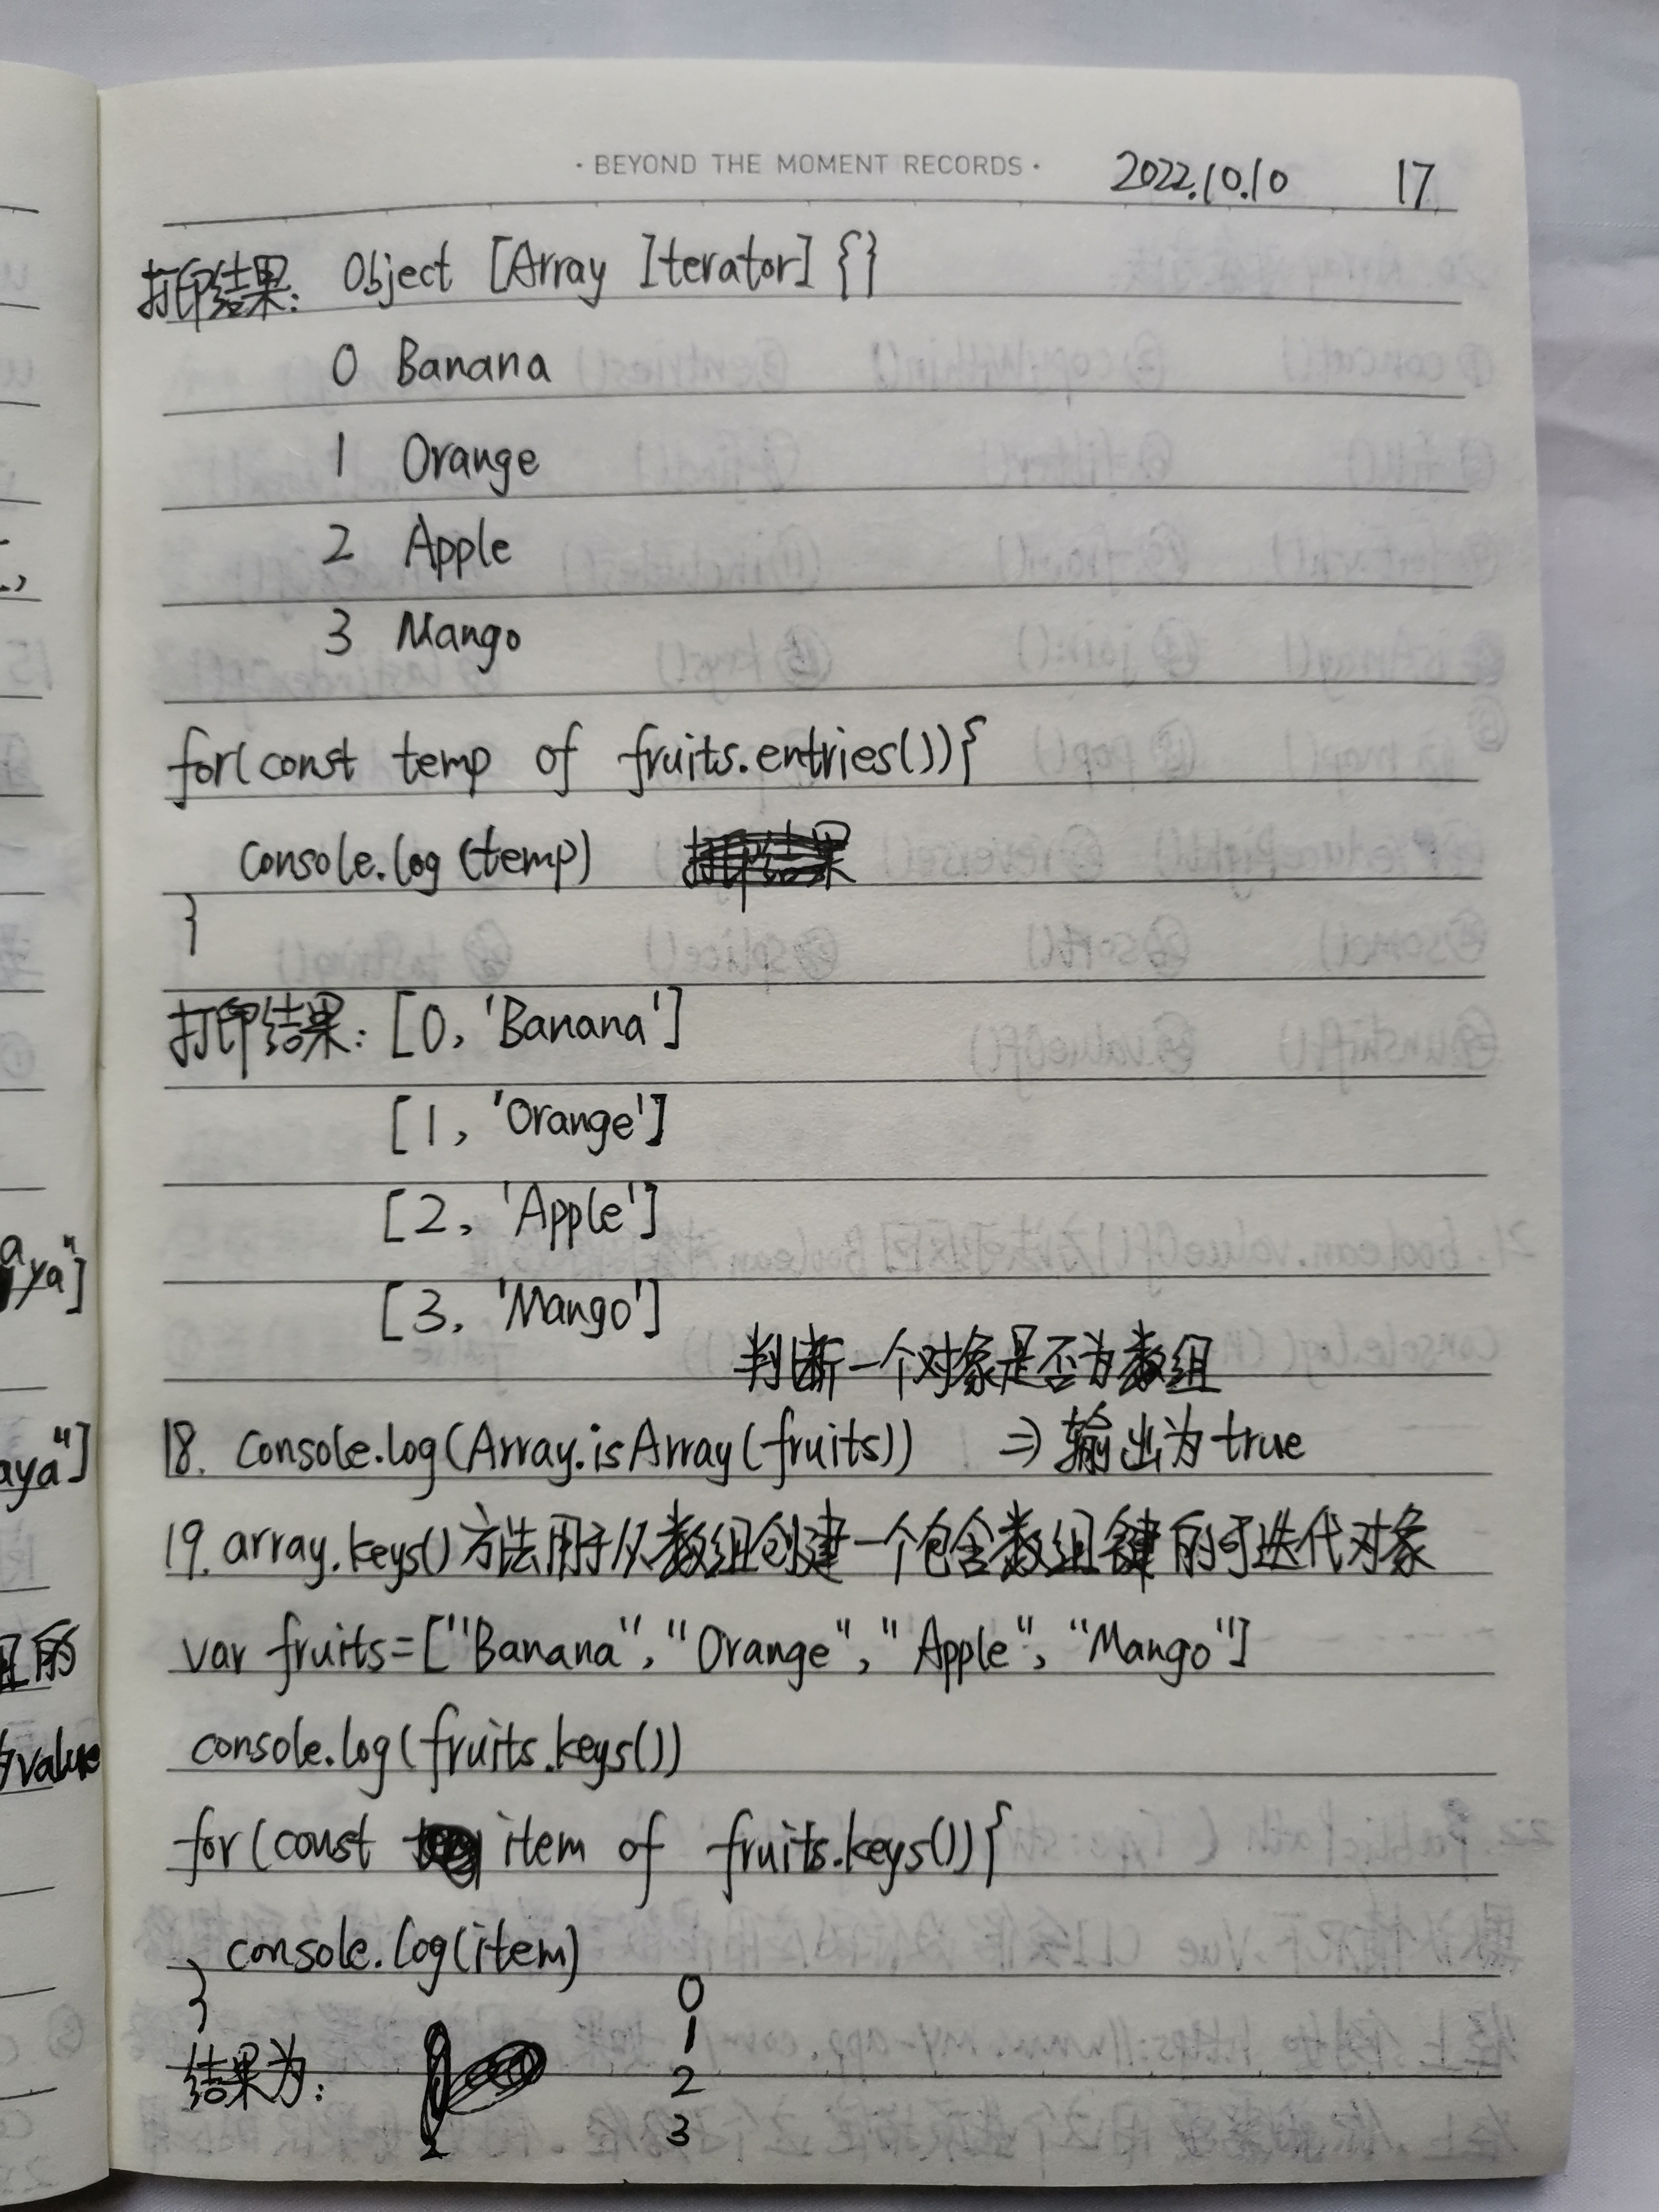 · BEYOND THE MOMENT RECORDS · 2022.10.10 17
打印结果: Object [Array Iterator] {}
0 Banana
1 Orange
2 Apple
3 Mango
for(const temp of fruits.entries()){
console.log(temp)
}
打印结果: [0, 'Banana']
[1, 'Orange']
[2, 'Apple']
[3, 'Mango']
判断一个对象是否为数组
18. console.log(Array.isArray(fruits)) => 输出为true
19. array.keys()方法用于从数组创建一个包含数组键的可迭代对象
var fruits=["Banana", "Orange", "Apple", "Mango"]
console.log(fruits.keys())
for(const item of fruits.keys()){
console.log(item)
}
结果为: 0
1
2
3
aya"]
aya"]
的
value